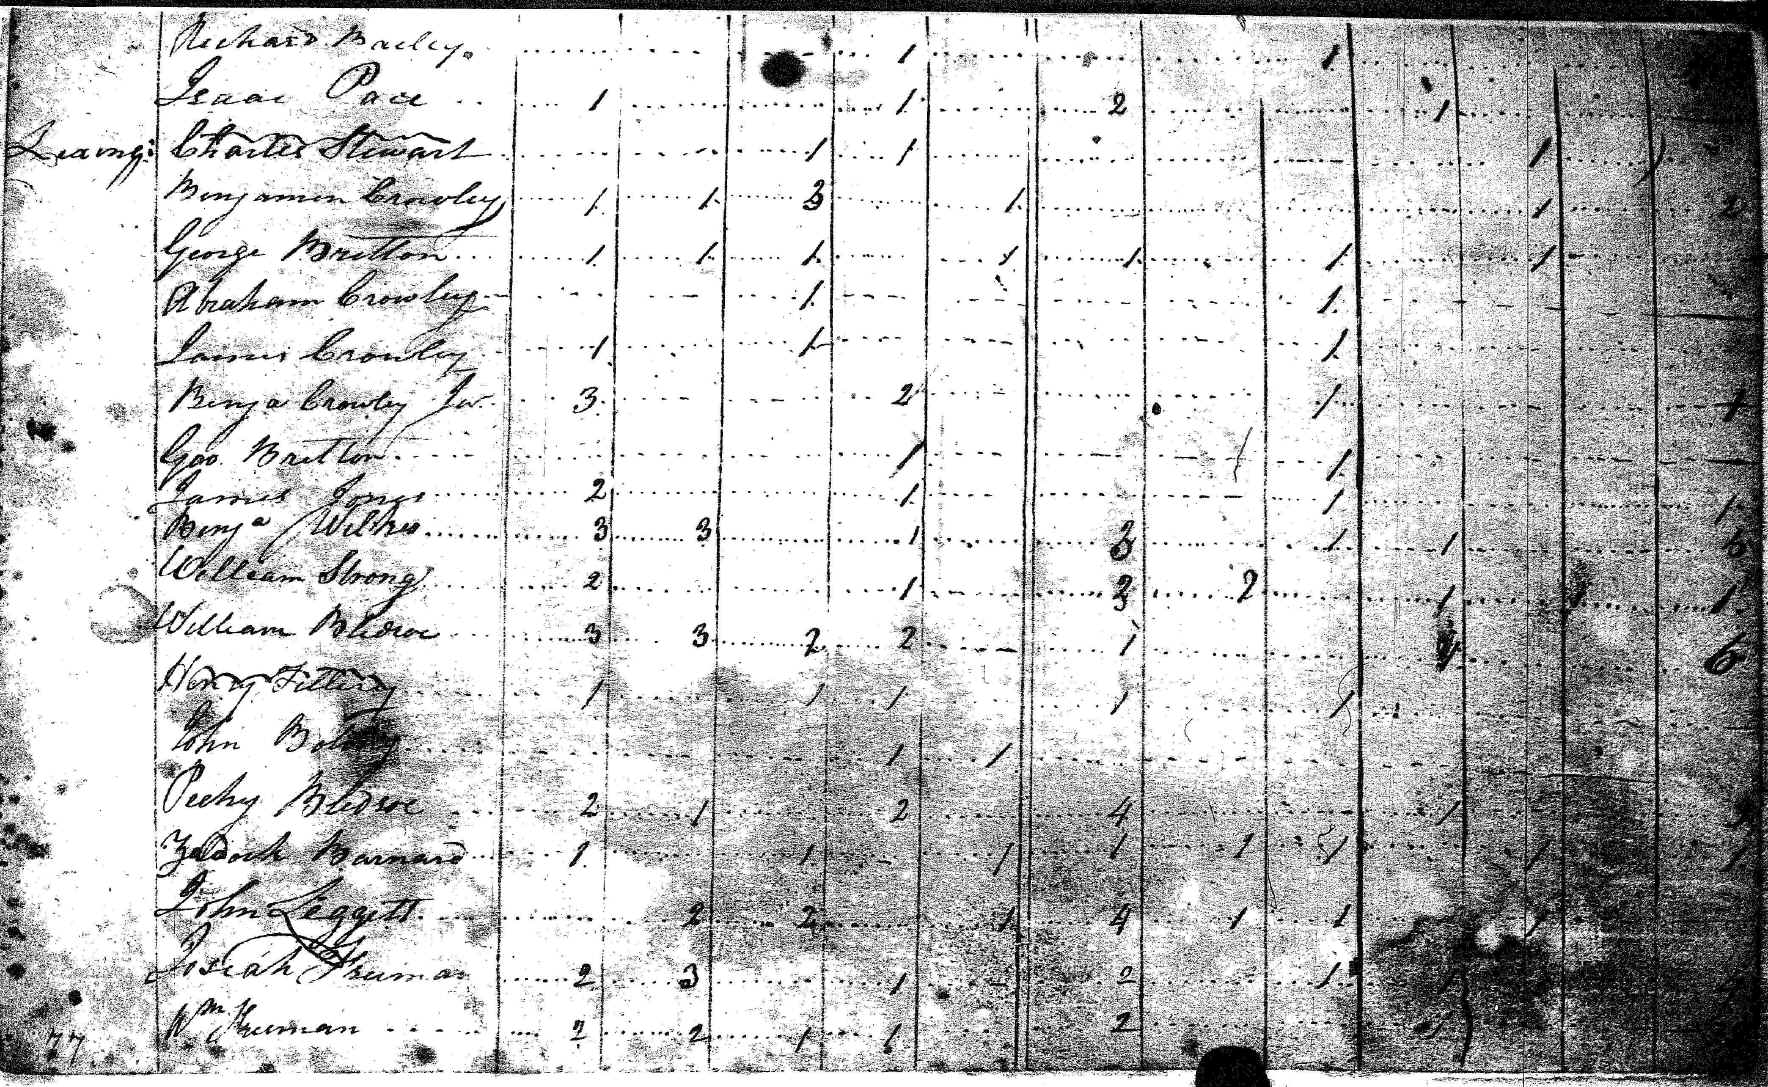 Richard Bailey 1 1
Isaac Pace 1 1 2 1
Charles Stewart 1 1 1
Benjamin Crowley 1 1 3 1 1 2
George Britton 1 1 1 1 1 1 1
Abraham Crowley 1 1
James Crowley 1 1 1
Benja Crowley Jur 3 2 1 1
Geo. Britton 1 1
James Jones 2 1 1 1
Benja Wilkes 3 3 1 3 1 1 6
William Strong 2 1 2 1 1
William Bledsoe 3 3 2 2 1 6
Henry 1 1 1 1 1
John 1 1
Peehy Bledsoe 2 1 2 4 1
Zadock Barnard 1 1 1 1 1 1 1 1
John Leggett 2 2 1 4 1 1 1
Josiah Freeman 2 3 1 2 1
Wm Freeman 2 2 1 1 2
77